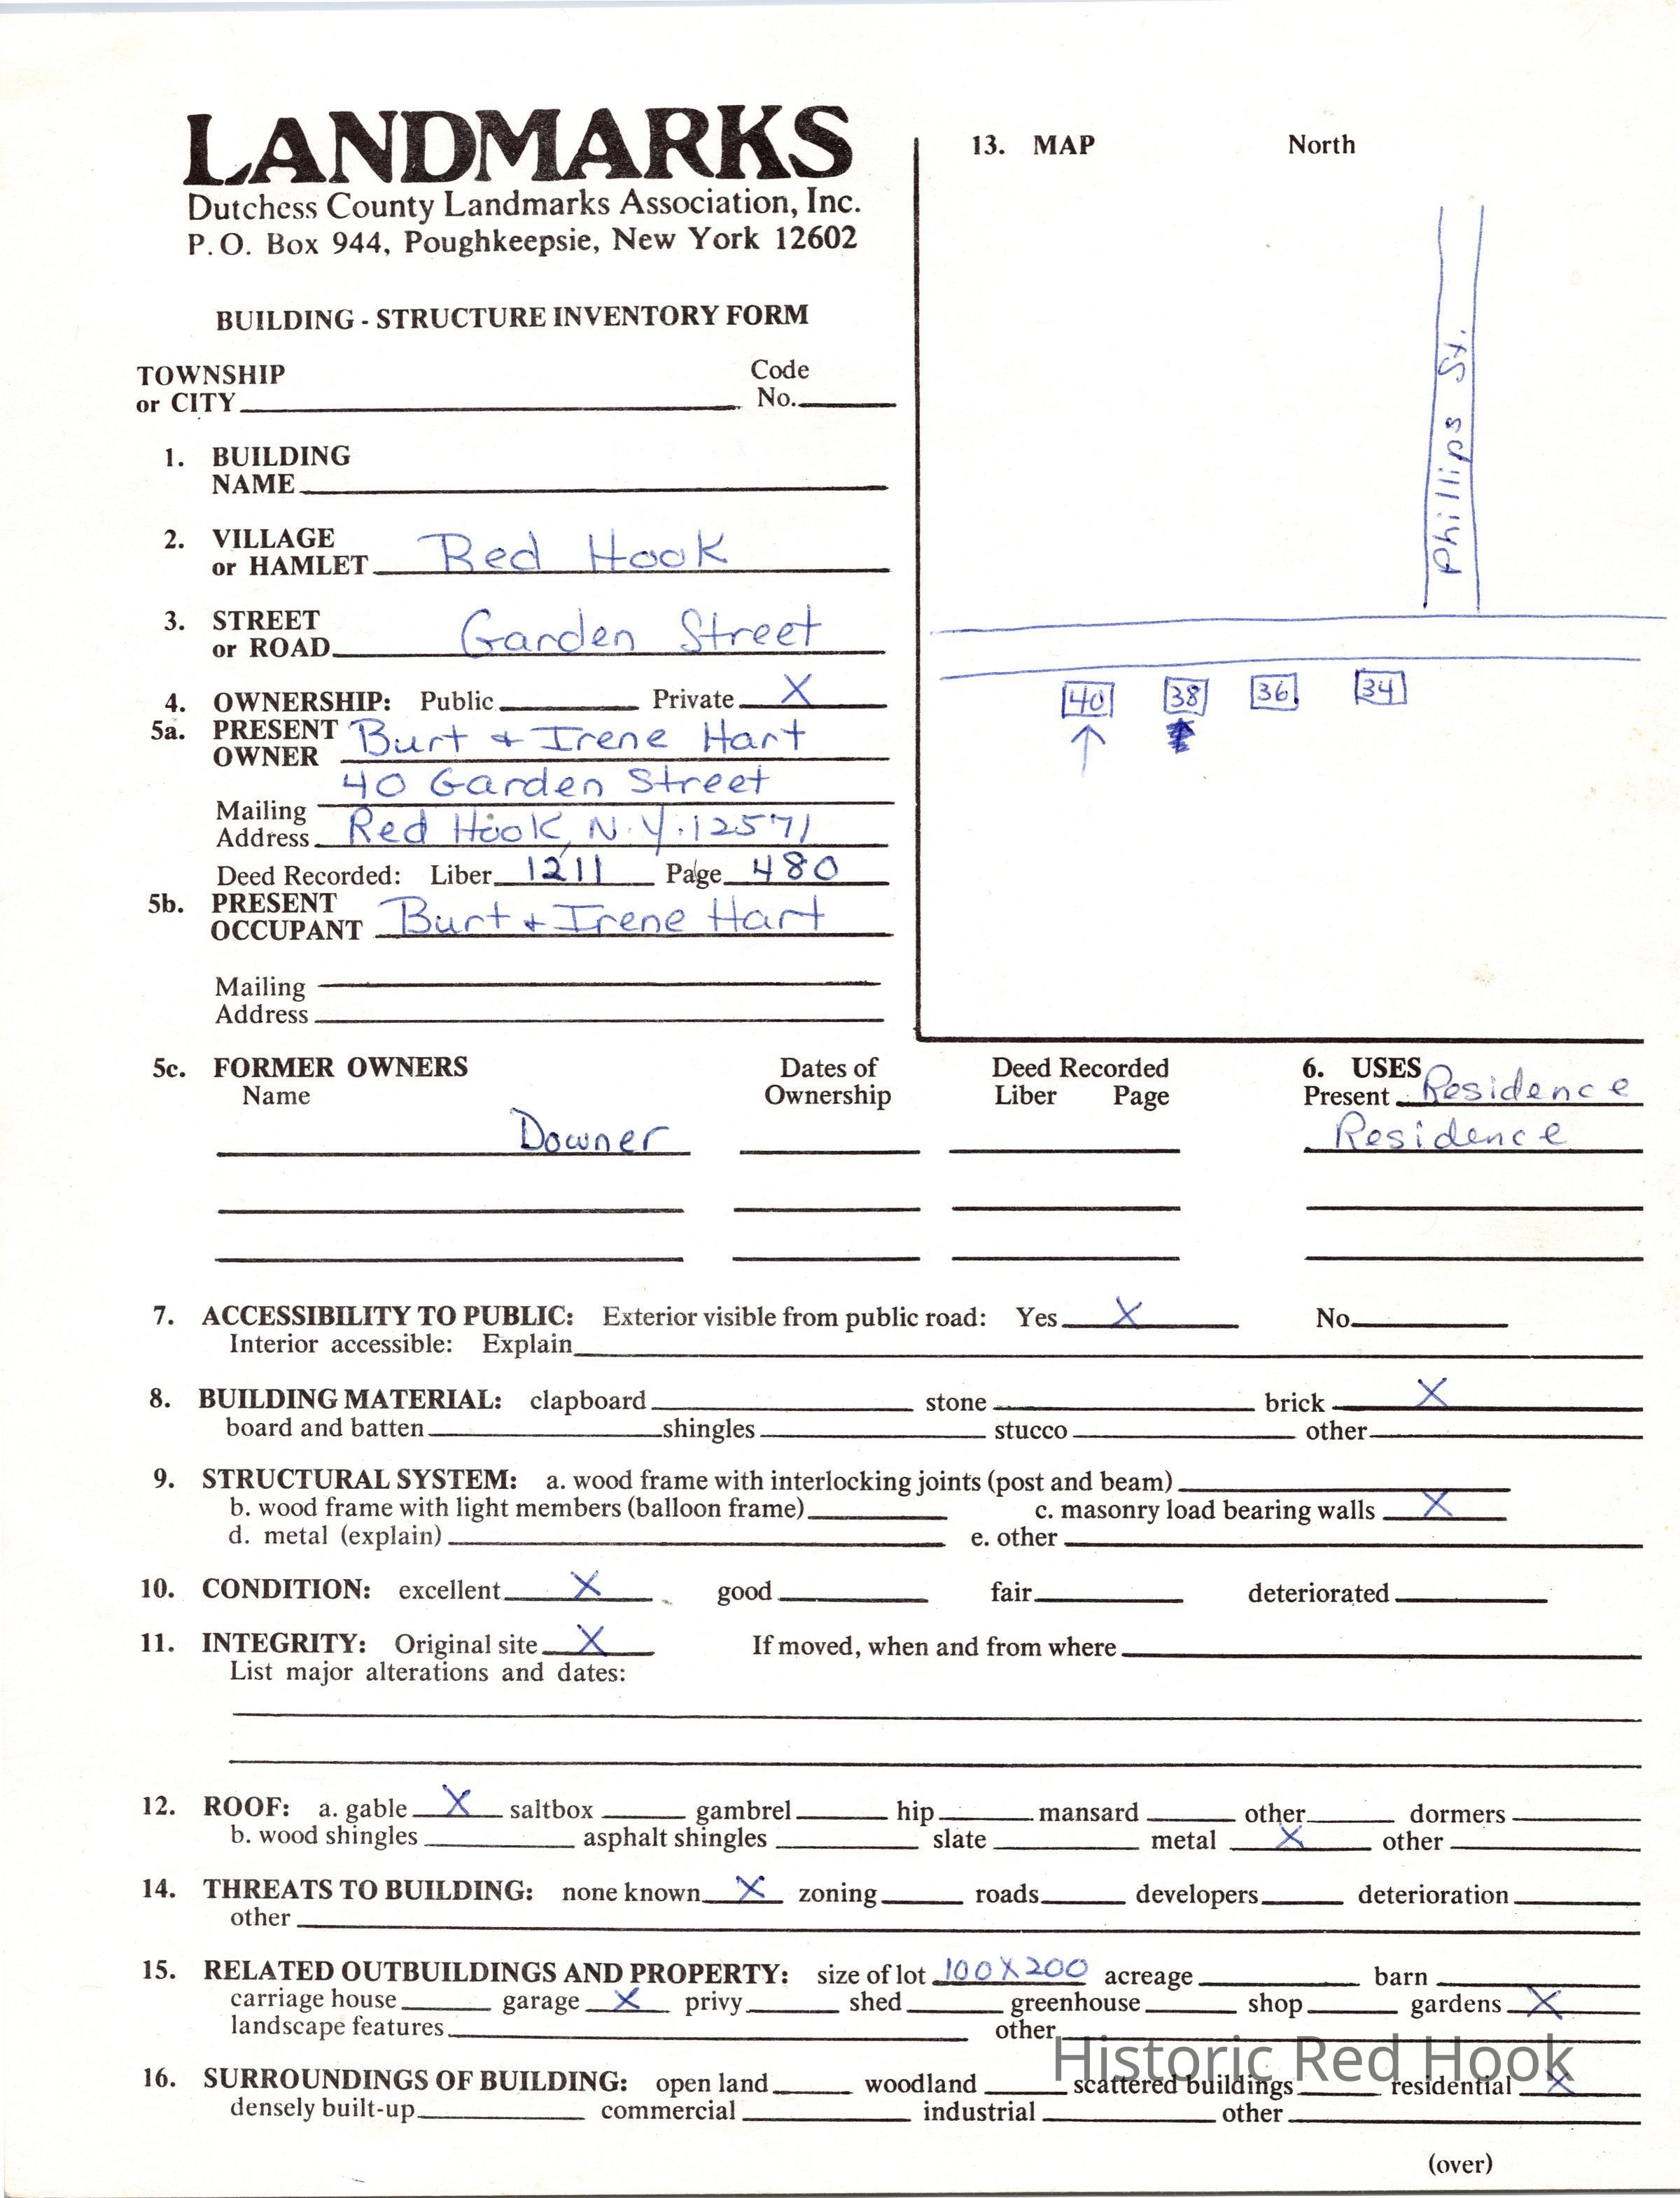 LANDMARKS
Dutchess County Landmarks Association, Inc.
P.O. Box 944, Poughkeepsie, New York 12602
BUILDING - STRUCTURE INVENTORY FORM
TOWNSHIP
or CITY
Code
No.
1. BUILDING
NAME
2. VILLAGE
or HAMLET Red Hook
3. STREET
or ROAD Garden Street
4. OWNERSHIP: Public Private X
5a. PRESENT
OWNER Burt + Irene Hart
40 Garden Street
Mailing
Address Red Hook, N.Y. 12571
Deed Recorded: Liber 1211 Page 480
5b. PRESENT
OCCUPANT Burt + Irene Hart
Mailing
Address
13. MAP North
Phillips St.
40 38 36 34
5c. FORMER OWNERS Dates of Deed Recorded 6. USES
Name Ownership Liber Page Present Residence
Downer Residence
7. ACCESSIBILITY TO PUBLIC: Exterior visible from public road: Yes X No
Interior accessible: Explain
8. BUILDING MATERIAL: clapboard stone brick X
board and batten shingles stucco other
9. STRUCTURAL SYSTEM: a. wood frame with interlocking joints (post and beam)
b. wood frame with light members (balloon frame) c. masonry load bearing walls X
d. metal (explain) e. other
10. CONDITION: excellent X good fair deteriorated
11. INTEGRITY: Original site X If moved, when and from where
List major alterations and dates:
12. ROOF: a. gable X saltbox gambrel hip mansard other dormers
b. wood shingles asphalt shingles slate metal X other
14. THREATS TO BUILDING: none known X zoning roads developers deterioration
other
15. RELATED OUTBUILDINGS AND PROPERTY: size of lot 100 X 200 acreage barn
carriage house garage X privy shed greenhouse shop gardens X
landscape features other
Historic Red Hook
16. SURROUNDINGS OF BUILDING: open land woodland scattered buildings residential X
densely built-up commercial industrial other
(over)